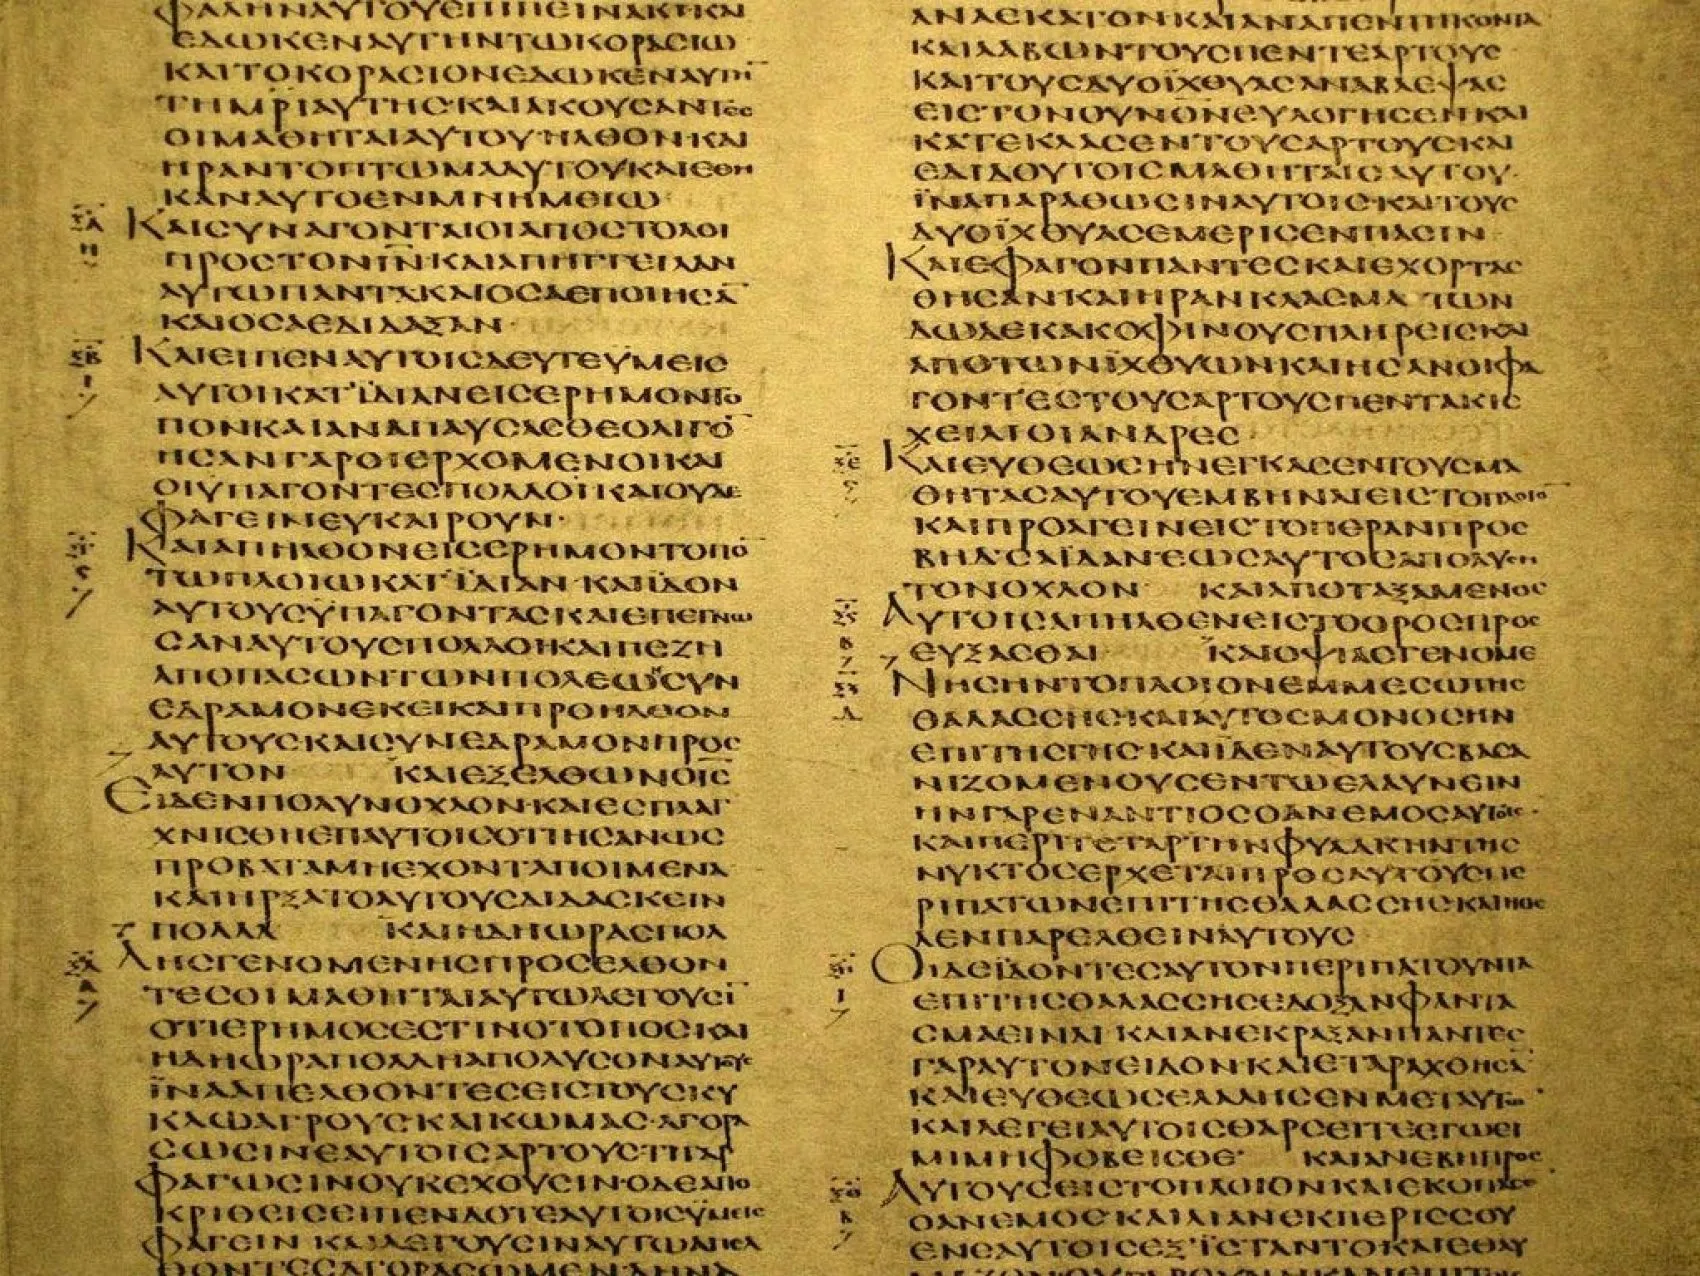 ΕΔΩΚΕΝΑΥΤΗΝΤΩΚΟΡΑϹΙΩ
ΚΑΙΤΟΚΟΡΑϹΙΟΝΕΔΩΚΕΝΑΥΤΗ̅
ΤΗΜΡ̅Ι̅ΑΥΤΗϹ·ΚΑΙΑΚΟΥϹΑΝΤΕϹ
ΟΙΜΑΘΗΤΑΙΑΥΤΟΥ·ΗΛΘΟΝ·ΚΑΙ
ΗΡΑΝΤΟΠΤΩΜΑΑΥΤΟΥΚΑΙΕΘΗ
ΚΑΝΑΥΤΟΕΝΜΝΗΜΕΙΩ·
ΚΑΙϹΥΝΑΓΟΝΤΑΙΟΙΑΠΟϹΤΟΛΟΙ
ΠΡΟϹΤΟΝΙ̅Ν̅·ΚΑΙΑΠΗΓΓΕΙΛΑΝ
ΑΥΤΩΠΑΝΤΑ·ΚΑΙΟϹΑΕΠΟΙΗϹΑ̅
ΚΑΙΟϹΑΕΔΙΔΑΞΑΝ·
ΚΑΙΕΙΠΕΝΑΥΤΟΙϹΔΕΥΤΕΫΜΕΙϹ
ΑΥΤΟΙΚΑΤΪΔΙΑΝΕΙϹΕΡΗΜΟΝΤΟ
ΠΟΝΚΑΙΑΝΑΠΑΥϹΑϹΘΕΟΛΙΓΟ̅
ΗϹΑΝΓΑΡΟΙΕΡΧΟΜΕΝΟΙΚΑΙ
ΟΙΫΠΑΓΟΝΤΕϹΠΟΛΛΟΙ·ΚΑΙΟΥΔΕ
ΦΑΓΕΙΝΕΥΚΑΙΡΟΥΝ·
ΚΑΙΑΠΗΛΘΟΝΕΙϹΕΡΗΜΟΝΤΟΠΟ̅
ΤΩΠΛΟΙΩΚΑΤΪΔΙΑΝ·ΚΑΙΪΔΟΝ
ΑΥΤΟΥϹΫΠΑΓΟΝΤΑϹΚΑΙΕΠΕΓΝΩ
ϹΑΝΑΥΤΟΥϹΠΟΛΛΟΙ·ΚΑΙΠΕΖΗ
ΑΠΟΠΑϹΩΝΤΩΝΠΟΛΕΩΝϹΥΝ
ΕΔΡΑΜΟΝΕΚΕΙΚΑΙΠΡΟΗΛΘΟΝ
ΑΥΤΟΥϹΚΑΙϹΥΝΕΔΡΑΜΟΝΠΡΟϹ
ΑΥΤΟΝ ΚΑΙΕΞΕΛΘΩΝΟΙ̅Ϲ̅
ΕΙΔΕΝΠΟΛΥΝΟΧΛΟΝ·ΚΑΙΕϹΠΛΑΓ
ΧΝΙϹΘΗΕΠΑΥΤΟΙϹΟΤΙΗϹΑΝΩϹ
ΠΡΟΒΑΤΑΜΗΕΧΟΝΤΑΠΟΙΜΕΝΑ·
ΚΑΙΗΡΞΑΤΟΑΥΤΟΥϹΔΙΔΑϹΚΕΙΝ
ΠΟΛΛΑ ΚΑΙΗΔΗΩΡΑϹΠΟΛ
ΛΗϹΓΕΝΟΜΕΝΗϹΠΡΟϹΕΛΘΟΝ
ΤΕϹΟΙΜΑΘΗΤΑΙΑΥΤΩΛΕΓΟΥϹΙ̅
ΟΤΙΕΡΗΜΟϹΕϹΤΙΝΟΤΟΠΟϹΚΑΙ
ΗΔΗΩΡΑΠΟΛΛΗΑΠΟΛΥϹΟΝΑΥΤΟΥϹ
ΪΝΑΑΠΕΛΘΟΝΤΕϹΕΙϹΤΟΥϹΚΥ
ΚΛΩΑΓΡΟΥϹ·ΚΑΙΚΩΜΑϹ·ΑΓΟΡΑ
ϹΩϹΙΝΕΑΥΤΟΙϹΑΡΤΟΥϹ·ΤΙΓΑΡ
ΦΑΓΩϹΙΝΟΥΚΕΧΟΥϹΙΝ·ΟΔΕΑΠΟ
ΚΡΙΘΕΙϹΕΙΠΕΝΔΟΤΕΑΥΤΟΙϹΫΜΕΙϹ
ΦΑΓΕΙΝ ΚΑΙΛΕΓΟΥϹΙΝΑΥΤΩ
ΑΝΑΕΚΑΤΟΝΚΑΙΑΝΑΠΕΝΤΗΚΟΝΤΑ
ΚΑΙΛΑΒΩΝΤΟΥϹΠΕΝΤΕΑΡΤΟΥϹ
ΚΑΙΤΟΥϹΔΥΟΪΧΘΥΑϹΑΝΑΒΛΕΨΑϹ
ΕΙϹΤΟΝΟΥΝΟΝΕΥΛΟΓΗϹΕΝΚΑΙ
ΚΑΤΕΚΛΑϹΕΝΤΟΥϹΑΡΤΟΥϹΚΑΙ
ΕΔΙΔΟΥΤΟΙϹΜΑΘΗΤΑΙϹΑΥΤΟΥ·
ΪΝΑΠΑΡΑΘΩϹΙΝΑΥΤΟΙϹΚΑΙΤΟΥϹ
ΔΥΟΪΧΘΥΑϹΕΜΕΡΙϹΕΝΠΑϹΙΝ
ΚΑΙΕΦΑΓΟΝΠΑΝΤΕϹΚΑΙΕΧΟΡΤΑϹ
ΘΗϹΑΝΚΑΙΗΡΑΝΚΛΑϹΜΑΤΩΝ
ΔΩΔΕΚΑΚΟΦΙΝΟΥϹΠΛΗΡΕΙϹΚΑΙ
ΑΠΟΤΩΝΪΧΘΥΩΝΚΑΙΗϹΑΝΟΙΦΑ
ΓΟΝΤΕϹΤΟΥϹΑΡΤΟΥϹΠΕΝΤΑΚΙϹ
ΧΕΙΛΙΟΙΑΝΔΡΕϹ
ΚΑΙΕΥΘΕΩϹΗΝΕΓΚΑϹΕΝΤΟΥϹΜΑ
ΘΗΤΑϹΑΥΤΟΥΕΜΒΗΝΑΙΕΙϹΤΟΠΛΟΙΟ̅
ΚΑΙΠΡΟΑΓΕΙΝΕΙϹΤΟΠΕΡΑΝΠΡΟϹ
ΒΗΔϹΑΪΔΑΝΕΩϹΑΥΤΟϹΑΠΟΛΥϹΗ
ΤΟΝΟΧΛΟΝ ΚΑΙΑΠΟΤΑΞΑΜΕΝΟϹ
ΑΥΤΟΙϹΑΠΗΛΘΕΝΕΙϹΤΟΟΡΟϹΠΡΟϹ
ΕΥΞΑϹΘΑΙ ΚΑΙΟΨΙΑϹΓΕΝΟΜΕ
ΝΗϹΗΝΤΟΠΛΟΙΟΝΕΜΜΕϹΩΤΗϹ
ΘΑΛΑϹϹΗϹ·ΚΑΙΑΥΤΟϹΜΟΝΟϹΗΝ
ΕΠΙΤΗϹΓΗϹ·ΚΑΙΪΔΕΝΑΥΤΟΥϹΒΑϹΑ
ΝΙΖΟΜΕΝΟΥϹΕΝΤΩΕΛΑΥΝΕΙΝ
ΗΝΓΑΡΕΝΑΝΤΙΟϹΟΑΝΕΜΟϹΑΥΤΟΙϹ·
ΚΑΙΠΕΡΙΤΕΤΑΡΤΗΝΦΥΛΑΚΗΝΤΗϹ
ΝΥΚΤΟϹΕΡΧΕΤΑΙΠΡΟϹΑΥΤΟΥϹΠΕ
ΡΙΠΑΤΩΝΕΠΙΤΗϹΘΑΛΑϹϹΗϹ·ΚΑΙΗΘΕ
ΛΕΝΠΑΡΕΛΘΕΙΝΑΥΤΟΥϹ
ΟΙΔΕΪΔΟΝΤΕϹΑΥΤΟΝΠΕΡΙΠΑΤΟΥΝΤΑ
ΕΠΙΤΗϹΘΑΛΑϹϹΗϹΕΔΟΞΑΝΦΑΝΤΑ
ϹΜΑΕΙΝΑΙ ΚΑΙΑΝΕΚΡΑΞΑΝΠΑΝΤΕϹ
ΓΑΡΑΥΤΟΝΕΙΔΟΝ·ΚΑΙΕΤΑΡΑΧΘΗϹΑ̅
ΚΑΙΕΥΘΕΩϹΕΛΑΛΗϹΕΝΜΕΤΑΥΤΩΝ·
ΚΑΙΛΕΓΕΙΑΥΤΟΙϹΘΑΡϹΕΙΤΕΕΓΩΕΙ
ΜΙΜΗΦΟΒΕΙϹΘΕ· ΚΑΙΑΝΕΒΗΠΡΟϹ
ΑΥΤΟΥϹΕΙϹΤΟΠΛΟΙΟΝ·ΚΑΙΕΚΟΠΑϹΕ
ΟΑΝΕΜΟϹ·ΚΑΙΛΙΑΝΕΚΠΕΡΙϹϹΟΥ
ΕΝΕΑΥΤΟΙϹΕΞΪϹΤΑΝΤΟΚΑΙΕΘΑΥ